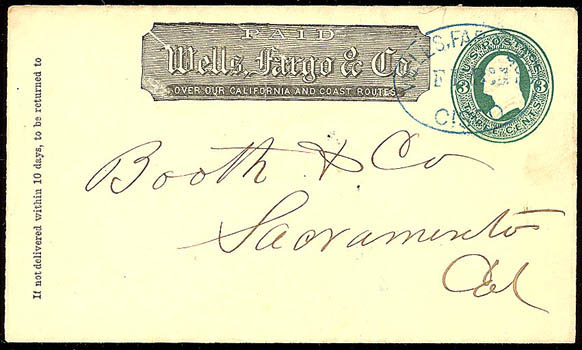 PAID
Wells, Fargo & Co.
OVER OUR CALIFORNIA AND COAST ROUTES.
WELLS, FAR
U.S. POSTAGE
3 3
THREE CENTS
Booth & Co
Sacramento
Cal
If not delivered within 10 days, to be returned to